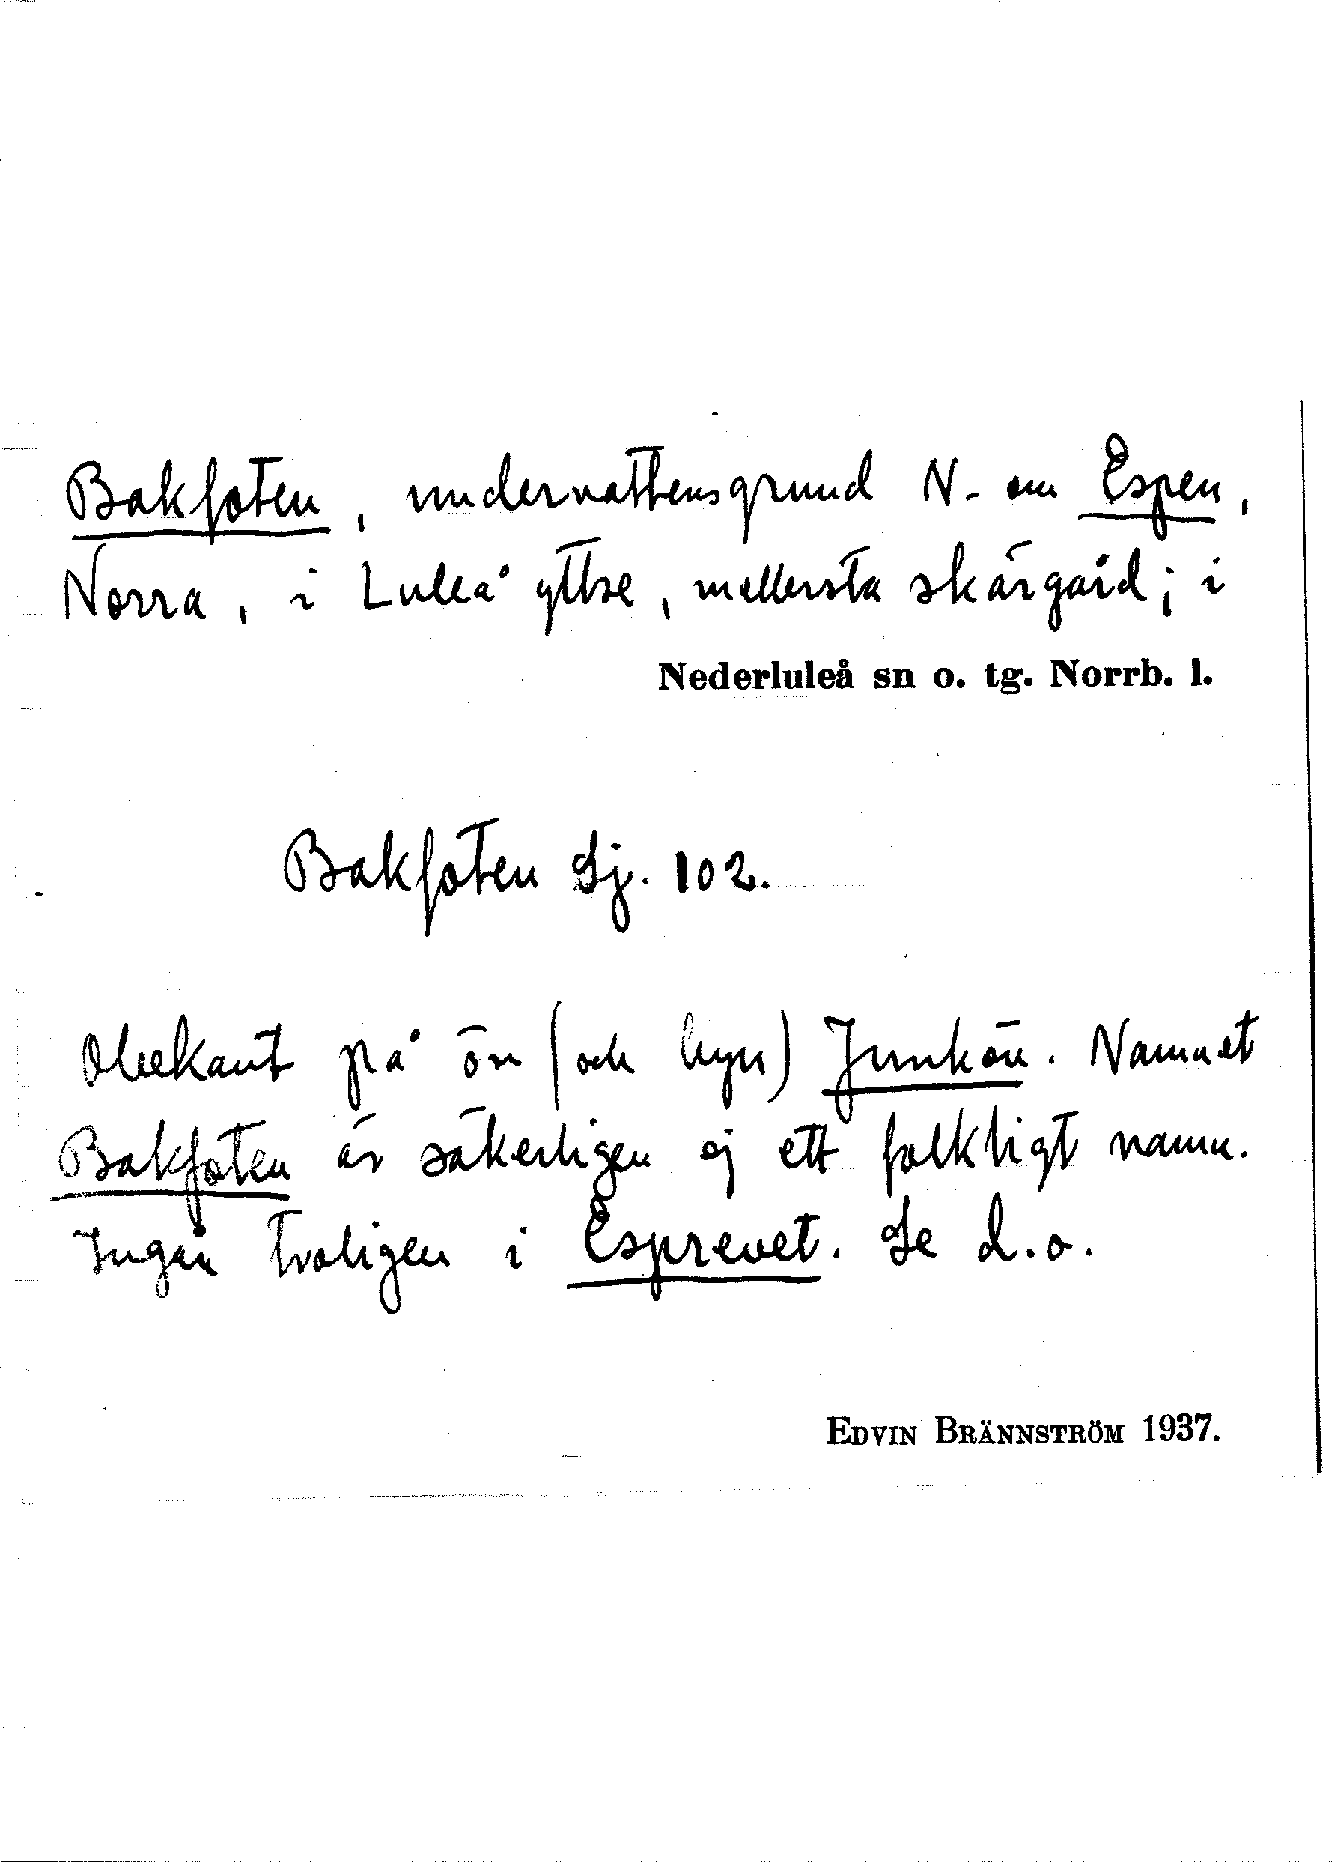 Bakfoten, undervattensgrund N. om Espen,
Norra, i Luleå yttre, mellersta skärgård; i
Nederluleå sn o. tg. Norrb. l.
Bakfoten Sj. 102.
Obekant på ön (och byn) Junkön. Namnet
Bakfoten är säkerligen ej ett folkligt namn.
Ingår troligen i Esprevet. Se d.o.
EDVIN BRÄNNSTRÖM 1937.